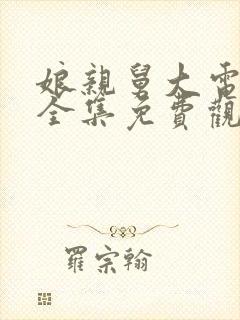 娘親舅大電
全集免費觀
羅宗翰